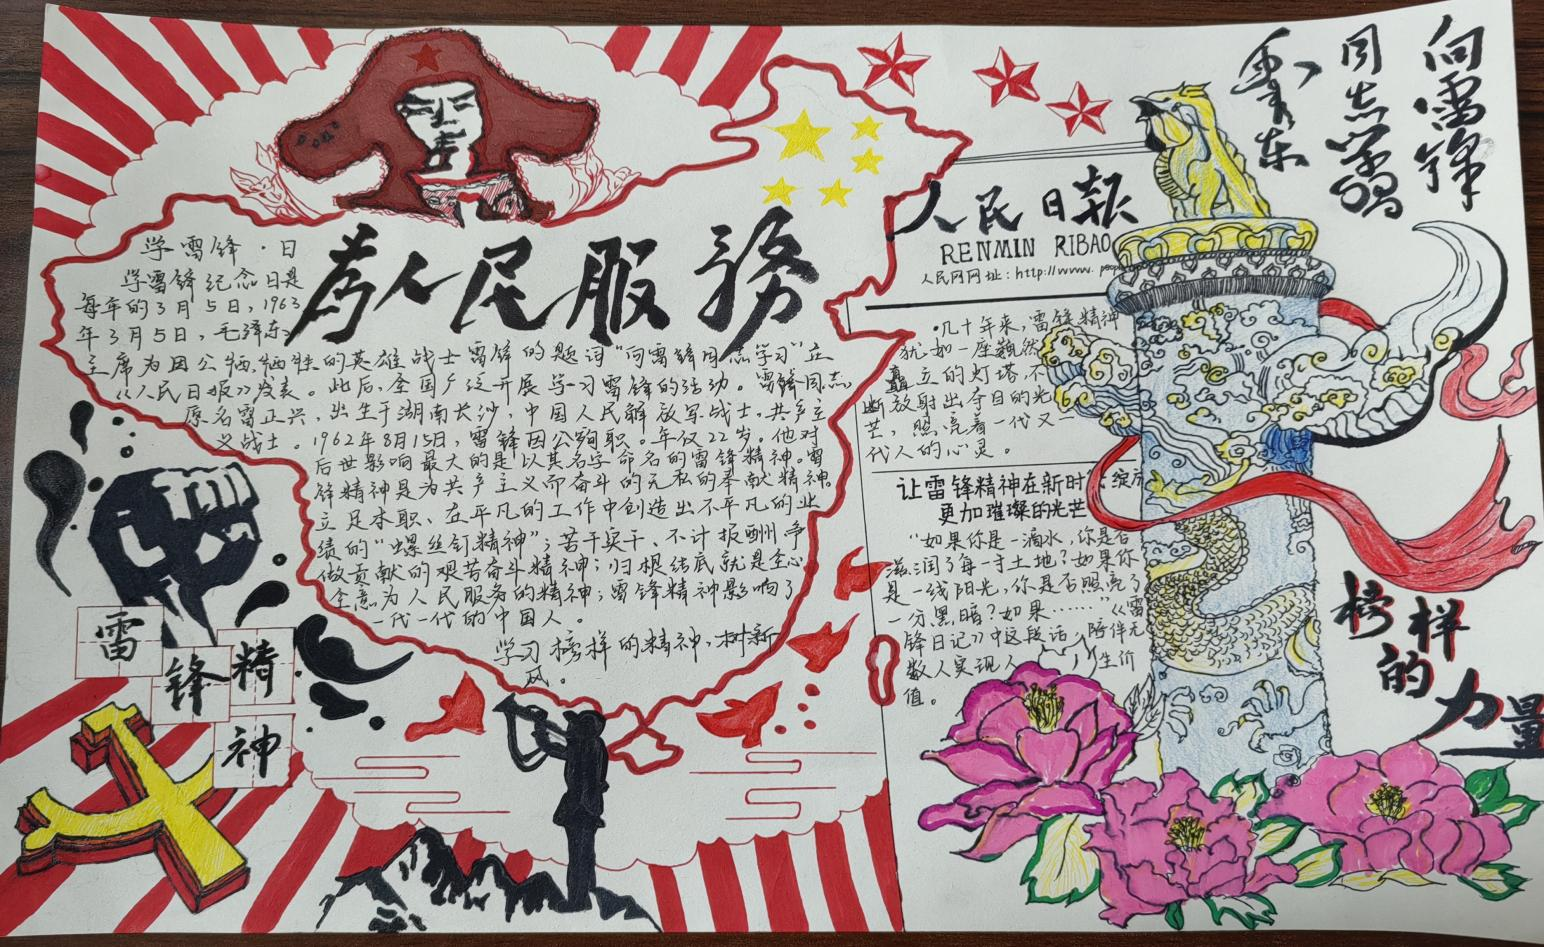 为人民服務
学雷锋·日
学雷锋纪念日是
每年的3月5日,1963
年3月5日,毛泽东
主席为因公牺牲的英雄战士雷锋的题词“向雷锋同志学习”在
《人民日报》发表。此后,全国广泛开展学习雷锋的活动。雷锋同志
原名雷正兴,出生于湖南长沙,中国人民解放军战士,共产主
义战士。1962年8月15日,雷锋因公殉职。年仅22岁。他对
后世影响最大的是以其名字命名的雷锋精神。雷
锋精神是为共产主义而奋斗的无私的奉献精神。
立足本职、在平凡的工作中创造出不平凡的业
绩的“螺丝钉精神”;苦干实干、不计报酬、争
做贡献的艰苦奋斗精神;归根结底就是全心
全意为人民服务的精神;雷锋精神影响了
一代一代的中国人。
学习榜样的精神,树新
风。
雷
锋
精
神
人民日报
RENMIN RIBAO
人民网网址:http://www.
·几十年来,雷锋精神
犹如一座巍然
矗立的灯塔,不
断放射出夺目的光
芒,照亮着一代又一
代人的心灵。
让雷锋精神在新时 绽放
更加璀璨的光芒
“如果你是一滴水,你是否
滋润了每一寸土地?如果你
是一线阳光,你是否照亮了
一分黑暗?如果……《雷
锋日记》中这段话,陪伴无
数人实现人 生价
值。
向雷锋
同志学习
毛泽东
榜样
的
力量